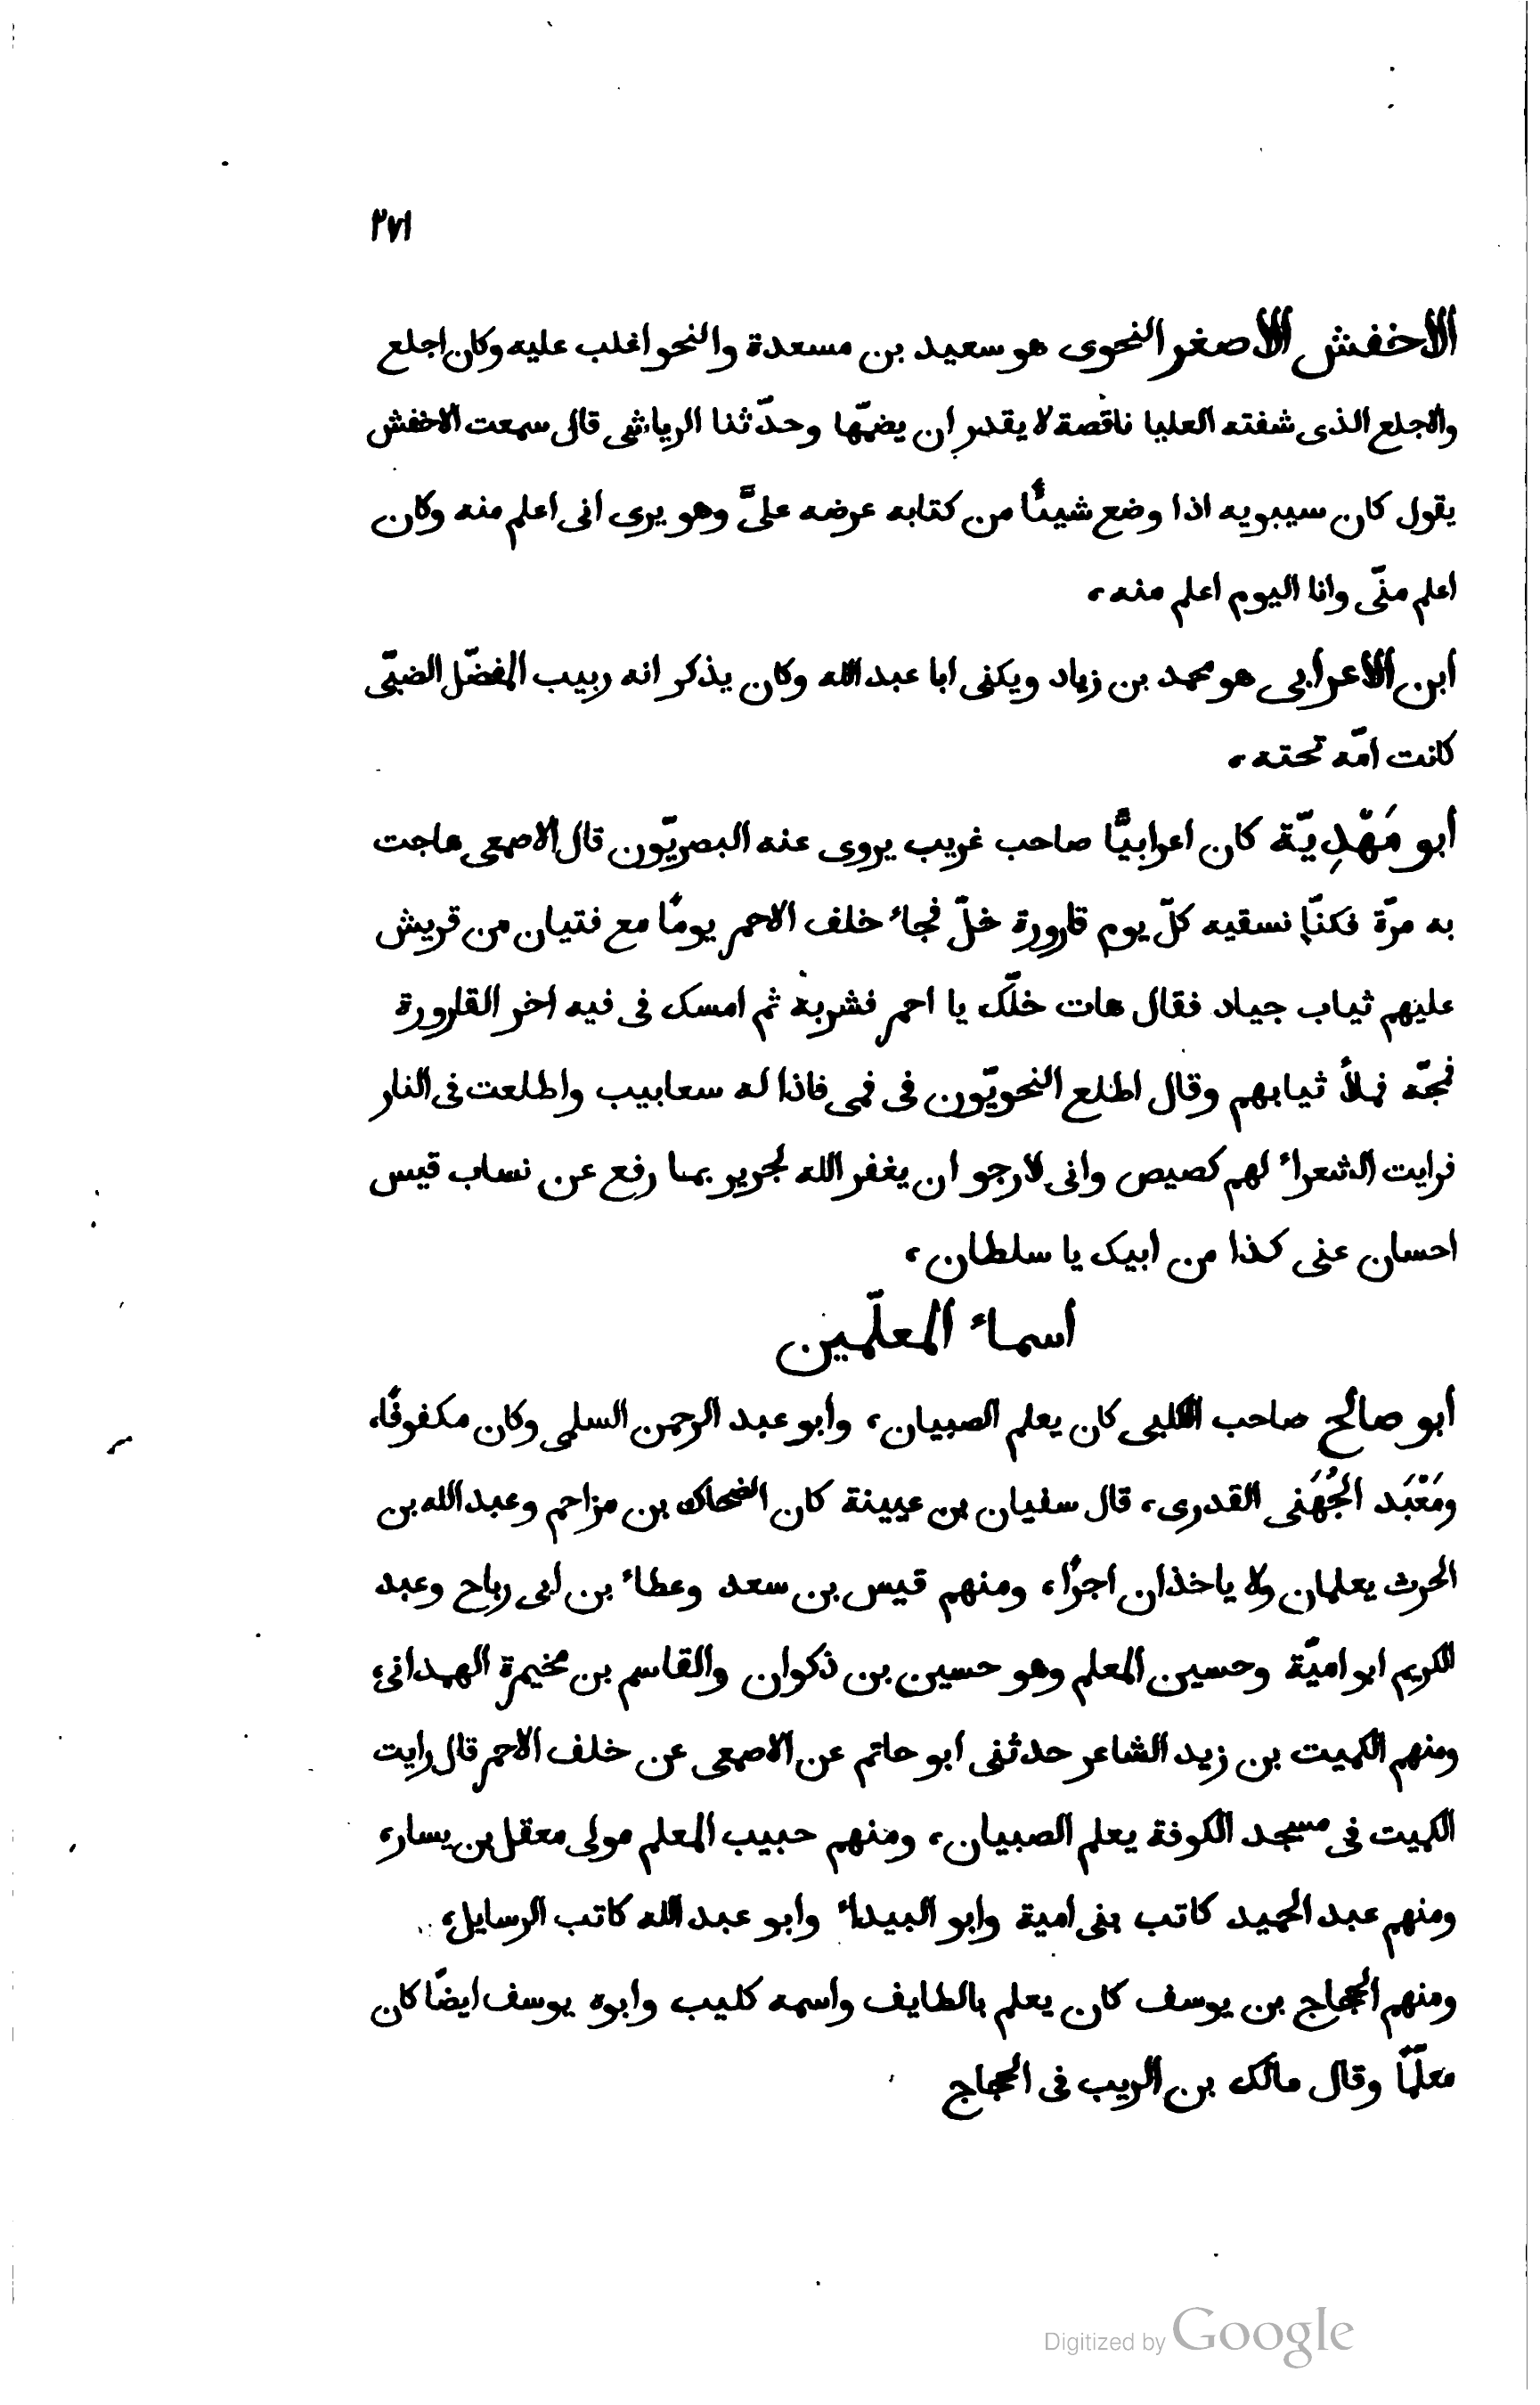 ٢٧١
الاخفش الاصغر النحوى هو سعيد بن مسعدة والنحو اغلب عليه وكان اجلع
والاجلع الذى شفته العليا ناقصة لا يقدر ان يضمّها وحدّثنا الرياشى قال سمعت الاخفش
يقول كان سيبويه اذا وضع شيئًا من كتابه عرضه علىَّ وهو يرى انى اعلم منه وكان
اعلم منّى وانا اليوم اعلم منه،
ابن الاعرابى هو محمد بن زياد ويكنى ابا عبد الله وكان يذكر انه ربيب المفضّل الضبّى
كانت امّه تحته،
أبو مَهْدِيّة كان اعرابيًّا صاحب غريب يروى عنه البصريّون قال الاصمعى هاجت
به مرّة فكنّا نسقيه كلّ يوم قارورة خلّ فجاء خلف الاحمر يومًا مع فتيان من قريش
عليهم ثياب جياد فقال هات خلّك يا احمر فشربه ثم امسك فى فيه اخر القارورة
فمجّه فملأ ثيابهم وقال اطلع النحويّون فى فمى فاذا له سعابيب واطلعت فى النار
فرايت الشعراء لهم كصيص وانى لارجو ان يغفر الله لجرير بما رفع عن نساب قيس
احسان عنى كذا من ابيك يا سلطان،
اسماء المعلّمين
أبو صالح صاحب الكلبى كان يعلم الصبيان، وابو عبد الرحمن السلمى وكان مكفوفًا،
ومَعْبَد الجُهَنى القدرى، قال سفيان بن عيينة كان الضحاك بن مزاحم وعبد الله بن
الحرث يعلمان ولا ياخذان اجرًا، ومنهم قيس بن سعد وعطاء بن ابى رباح وعبد
الكريم ابو اميّة وحسين المعلم وهو حسين بن ذكوان والقاسم بن مخيمرة الهمدانى،
ومنهم الكميت بن زيد الشاعر حدثنى ابو حاتم عن الاصمعى عن خلف الاحمر قال رايت
الكميت فى مسجد الكوفة يعلم الصبيان، ومنهم حبيب المعلم مولى معقل بن يسار،
ومنهم عبد الحميد كاتب بنى امية وابو البيداء وابو عبد الله كاتب الرسايل،
ومنهم الحجاج بن يوسف كان يعلم بالطايف واسمه كليب وابوه يوسف ايضًا كان
معلّمًا وقال مالك بن الريب فى الحجاج
Digitized by Google